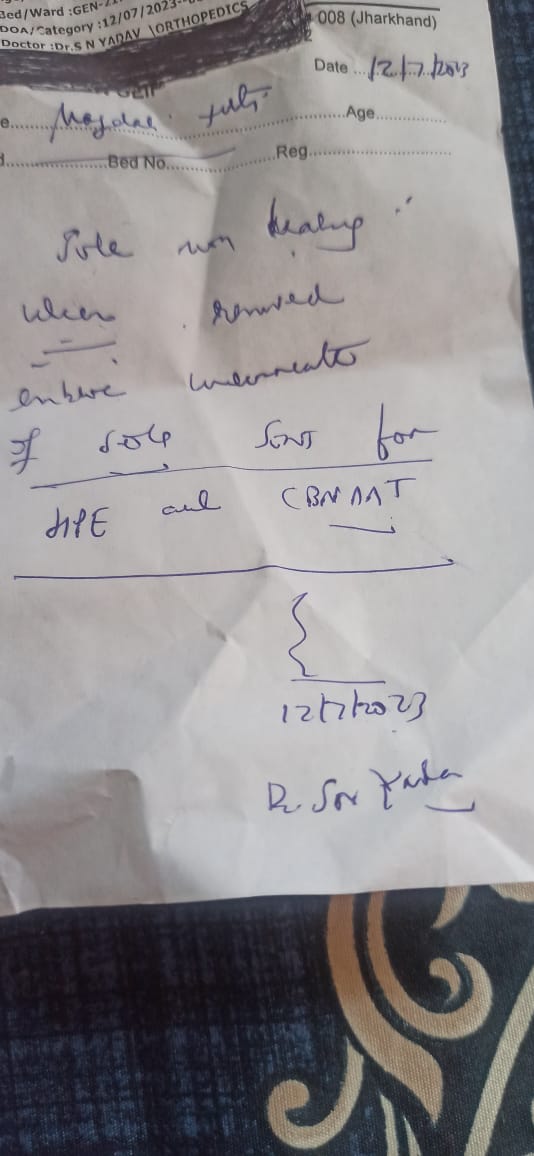 Bed/Ward :GEN-
DOA/Category :12/07/2023-
Doctor :Dr.S N YADAV \ORTHOPEDICS
008 (Jharkhand)
Date ... 12/7/2023
e..... ..... Age.....
Bed No..... Reg.....
Sole non healing
ulcer . removed
entire underneath
of sole sent for
HPE and CBNAAT
12/7/2023
Dr SN Yadav